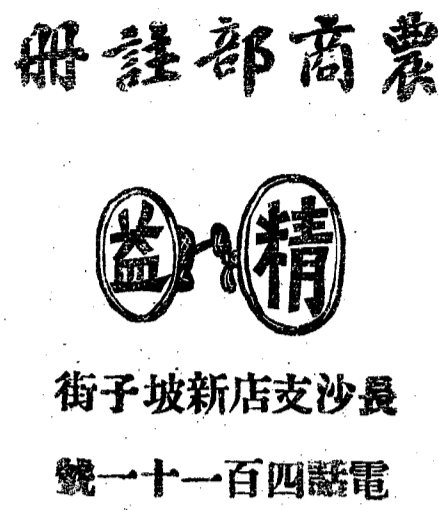 農商部註冊
精益
長沙支店新坡子街
電話四百一十一號